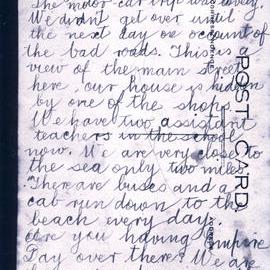 The motor-car trip was lovely.
We didn't get over until
the next day on account of
the bad roads. This is a
view of the main street
here, our house is hidden
by one of the shops.
We have two assistant
teachers in the school
now. We are very close to
the sea only two miles.
There are buses and a
cab run down to the
beach every day.
Are you having Empire
Day over there? We are
POST CARD